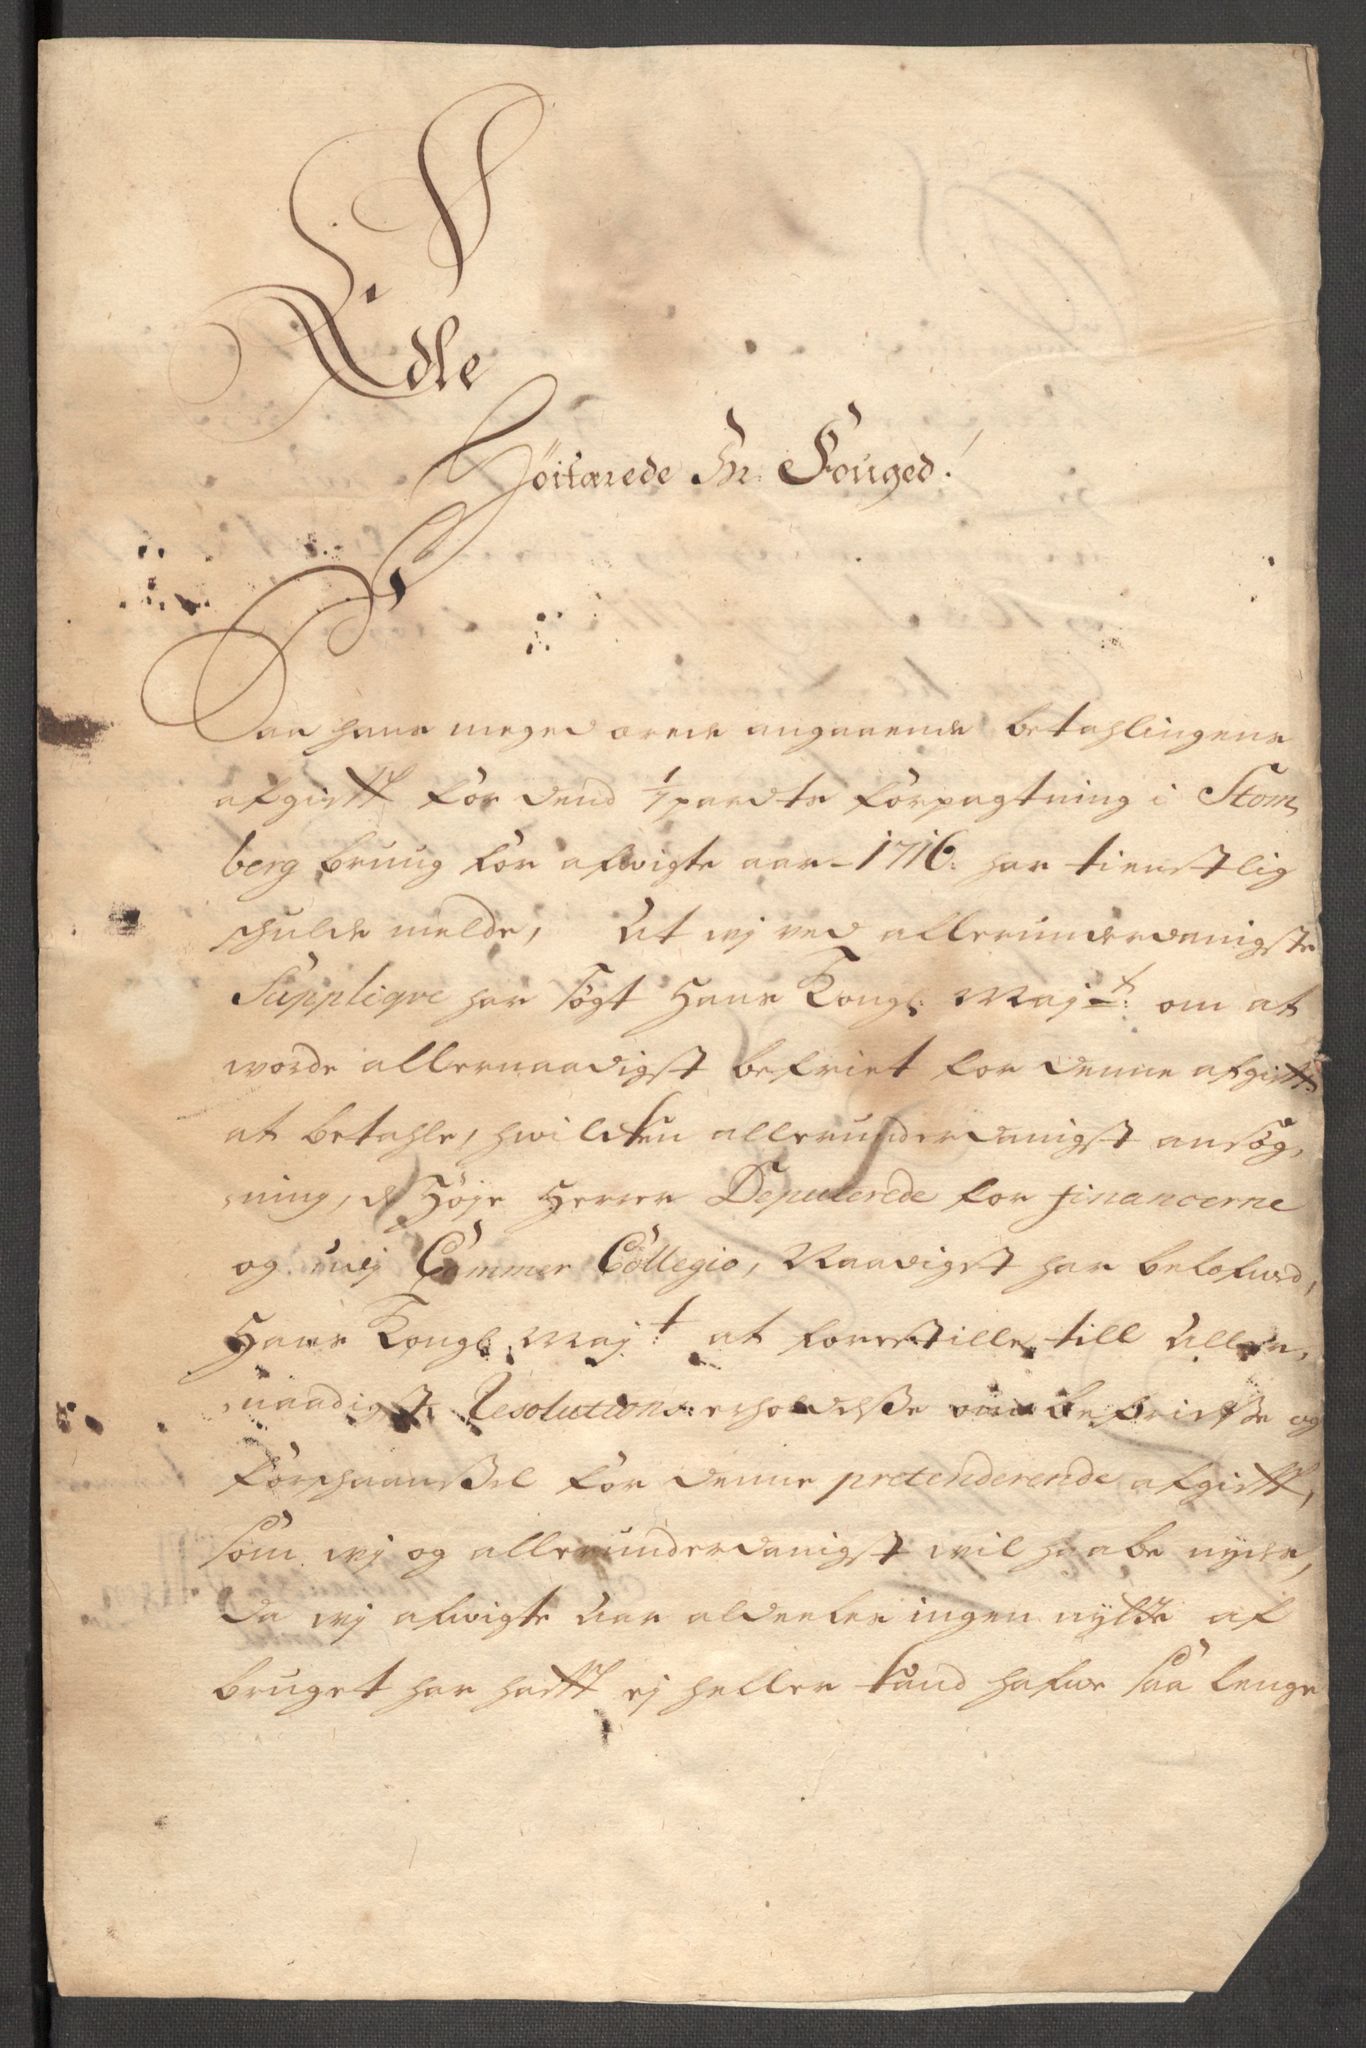 Ædle
Høitærede Hr: Fouged!
Paa hans meged ærede angaaende betahlingens
afgifft for dend 1/7 pardts forpagtning i Stom,
berg bruug for afvigte aar 1716: har tienstlig
schulde melde, At wj ved allerunderdanigste
Supplique har søgt Hans Kongl: May:t: om at
worde allernaadigst befriet for denne afgifft
at betahle, hwilcken allerunderdanigst ansøg,
,ning, d Høje Herrer Deputerede for financerne
og Cammer Collegio, Naadigst har belofwed,
Hans Kongl: May:t at forestille, till Aller,
,naadigst Resolutions erholdelse om befrielse og
forschaanssel for denne pretenderende afgifft,
som wj og allerunderdanigst wil haabe nyde,
da wj afwigte aar aldeeles ingen nytte af
bruget har hafft ej heller kand hafwe saa lenge